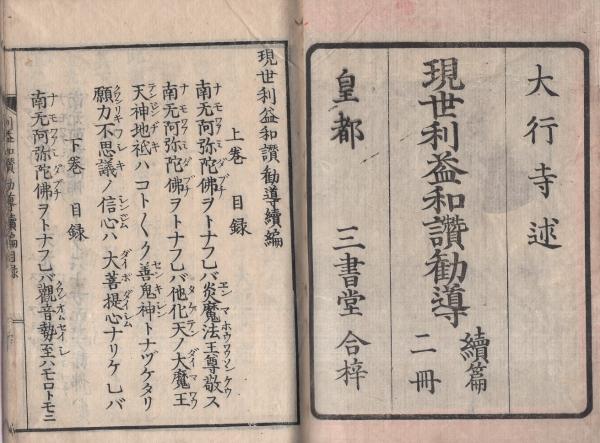 大行寺述
現世利益和讃勧導
續篇
二冊
皇都 三書堂 合梓
現世利益和讃勧導續編
上巻 目録
南无阿弥陀佛ヲトナフレバ炎魔法王尊敬ス
南无阿弥陀佛ヲトナフレバ他化天ノ大魔王
天神地祇ハコト〱ク善鬼神トナヅケタリ
願力不思議ノ信心ハ大菩提心ナリケレバ
下巻 目録
南无阿弥陀佛ヲトナフレバ觀音勢至ハモロトモニ